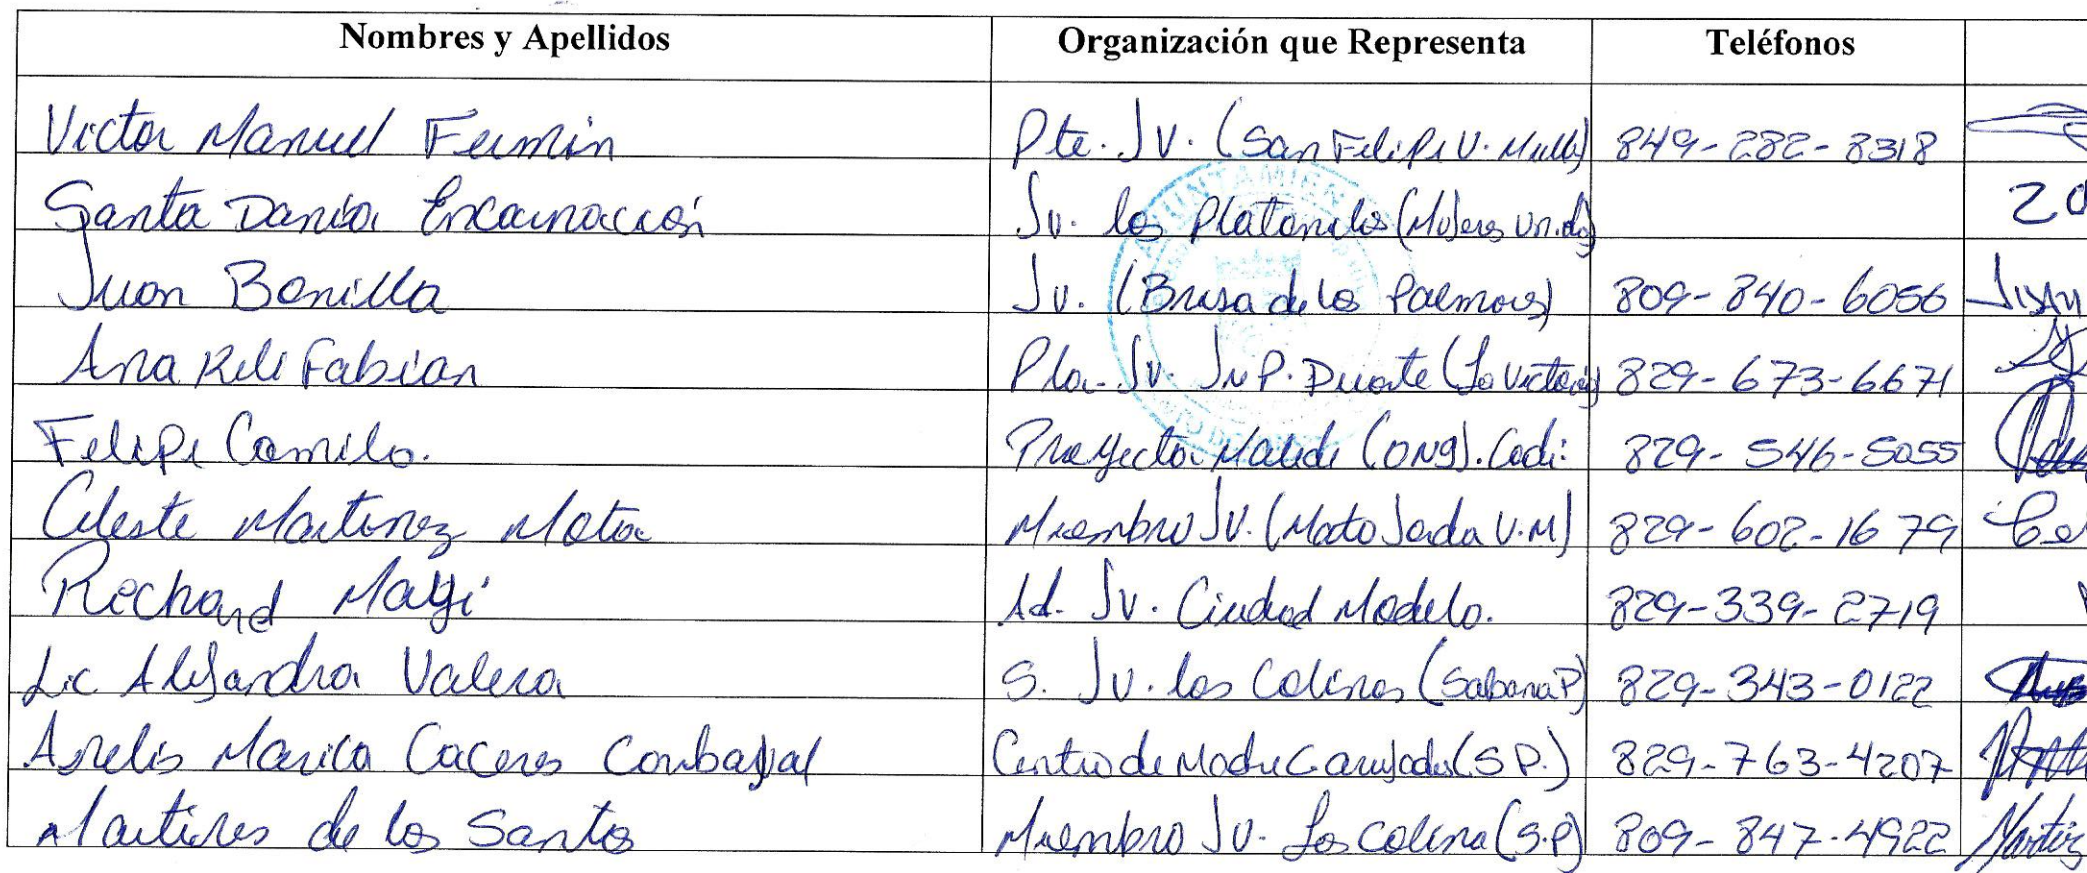 Nombres y Apellidos Organización que Representa Teléfonos
Victor Manuel Fermin Pte. Jv. (San Felipe V. Mella) 849-282-8318
Santa Dania Encarnación Jv. los Platanitos (Mujeres Unidas) 20
Juan Bonilla Jv. (Brisa de las Palmas) 809-840-6056 Juan
Ana Fabian Pta. Jv. Ju P. Duarte (La Victoria) 829-673-6671
Felipe Camilo. Proyecto (ONG). Codi: 829-546-5055
Celeste Martinez Mota Miembro Jv. (Mata V.M) 829-602-1679 Ce
Rechard Mayi Ad. Jv. Ciudad Modelo. 829-339-2719
Lic Alejandra Valera S. Jv. las Colinas (Sabana P) 829-343-0122
Anelis Marica Caceres Carbajal Centro de Madre (S P.) 829-763-4207
Martires de los Santos Miembro Jv. Las Colina (S.P) 809-847-4922 Martires
AYUNTAMIEN